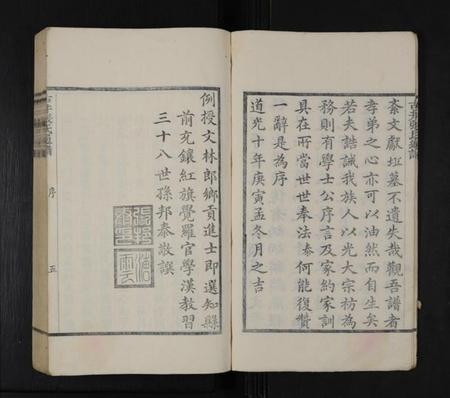 紊文獻坵墓不遺失哉觀吾譜者
孝弟之心亦可以油然而自生矣
若夫誥誡我族人以光大宗祊為
務則有學士公序言及家約家訓
具在所當世世奉法泰何能復贊
一辭是為序
道光十年庚寅孟冬月之吉
例授文林郎鄉貢進士即選知縣
前充鑲紅旗覺羅官學漢教習
三十八世孫邦泰敬譔
序
五